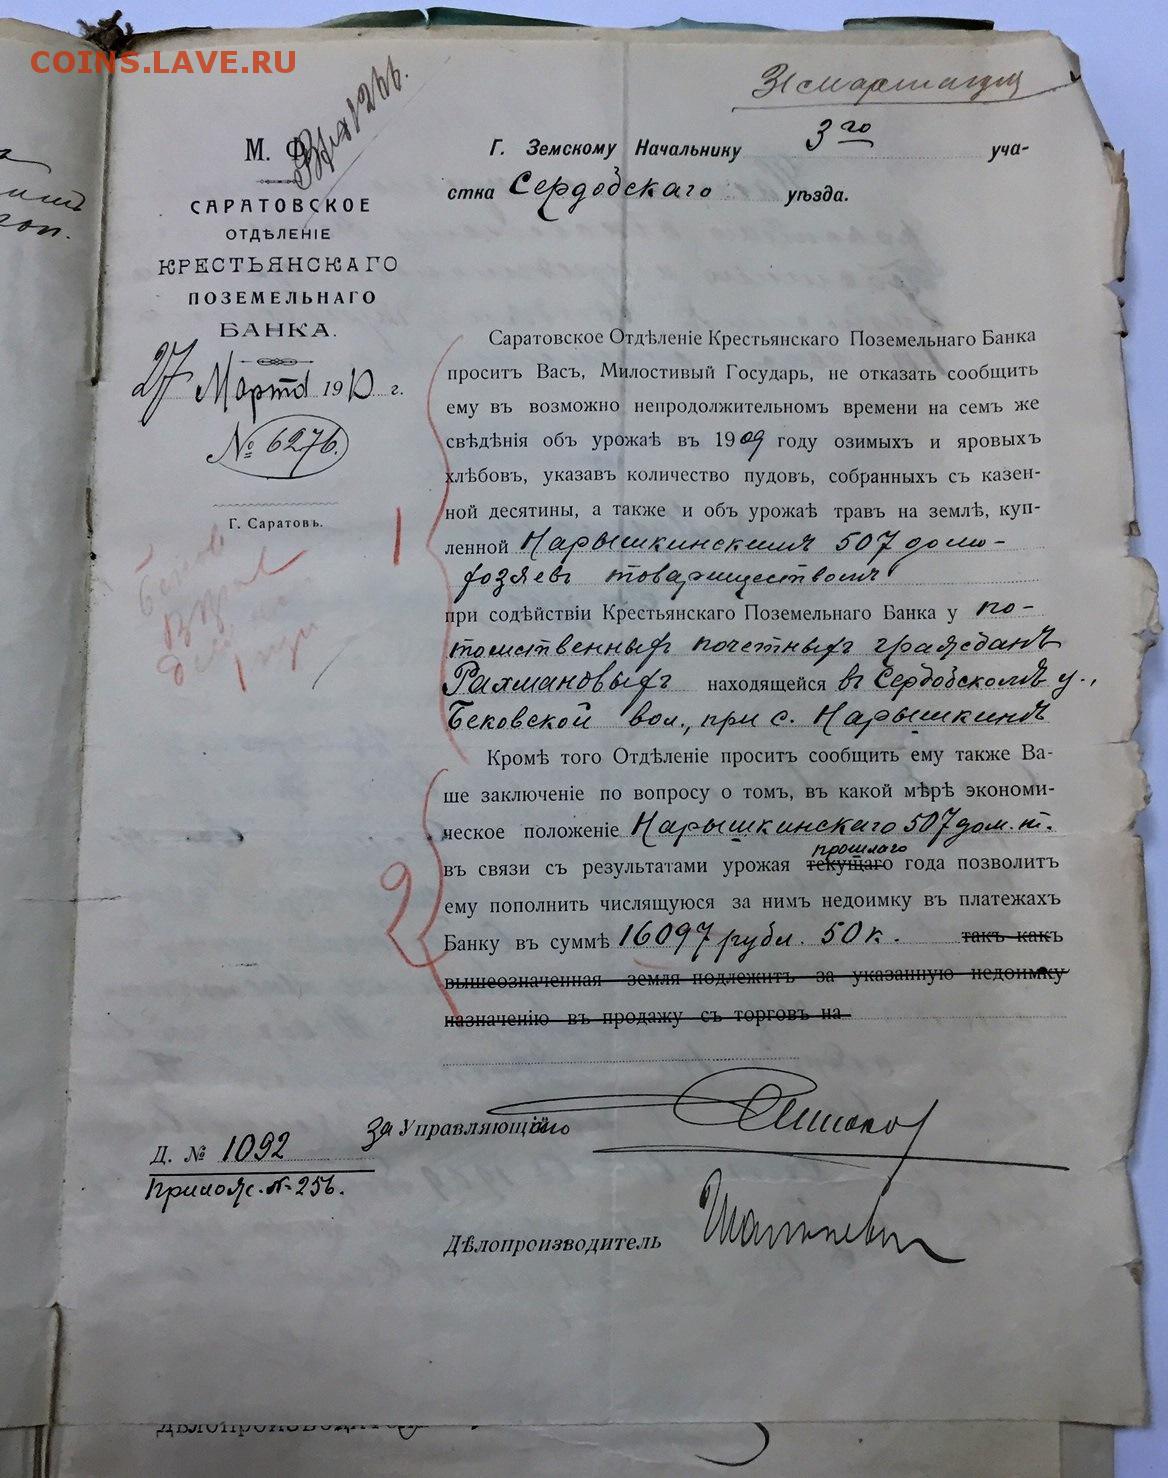 COINS.LAVE.RU
31 марта
М. Ф.
САРАТОВСКОЕ
ОТДѢЛЕНІЕ
КРЕСТЬЯНСКАГО
ПОЗЕМЕЛЬНАГО
БАНКА.
27 Марта 1910 г.
№ 6276.
Г. Саратовъ.
Г. Земскому Начальнику 3го уча-
стка Сердобскаго уѣзда.
Саратовское Отдѣленіе Крестьянскаго Поземельнаго Банка
проситъ Васъ, Милостивый Государь, не отказать сообщить
ему въ возможно непродолжительномъ времени на семъ же
свѣдѣнія объ урожаѣ въ 1909 году озимыхъ и яровыхъ
хлѣбовъ, указавъ количество пудовъ, собранныхъ съ казен-
ной десятины, а также и объ урожаѣ травъ на землѣ, куп-
1
ленной Нарышкинскимъ 507 домо-
хозяевъ товариществомъ
при содѣйствіи Крестьянскаго Поземельнаго Банка у по-
томственныхъ почетныхъ гражданъ
Рахмановыхъ находящейся въ Сердобскомъ у.,
Бековской вол., при с. Нарышкинѣ
Кромѣ того Отдѣленіе проситъ сообщить ему также Ва-
ше заключеніе по вопросу о томъ, въ какой мѣрѣ экономи-
ческое положеніе Нарышкинскаго 507 дом. т.
прошлаго
въ связи съ результатами урожая текущаго года позволитъ
2
ему пополнить числящуюся за нимъ недоимку въ платежахъ
Банку въ суммѣ 16097 рубл. 50 к. такъ какъ
вышеозначенная земля подлежитъ за указанную недоимку
назначенію въ продажу съ торговъ на
За Управляющаго
Д. № 1092
Прилож. № 256.
Дѣлопроизводитель
Дѣлопроизводитель